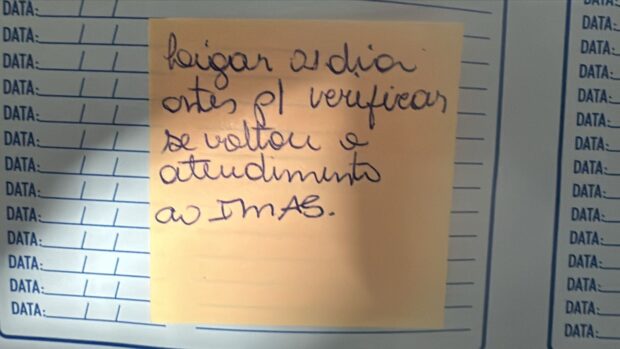 DATA: / /
DATA: / /
DATA: / /
DATA: / /
DATA: / /
DATA: / /
DATA: / /
DATA: / /
DATA: / /
DATA: / /
DATA: / /
DATA: / /
DATA: / /
Ligar 01 dia
antes p/ verificar
se voltou o
atendimento
ao IMAS.
DATA:
DATA:
DATA:
DATA:
DATA:
DATA:
DATA:
DATA:
DATA:
DATA:
DATA:
DATA:
DATA:
DATA: